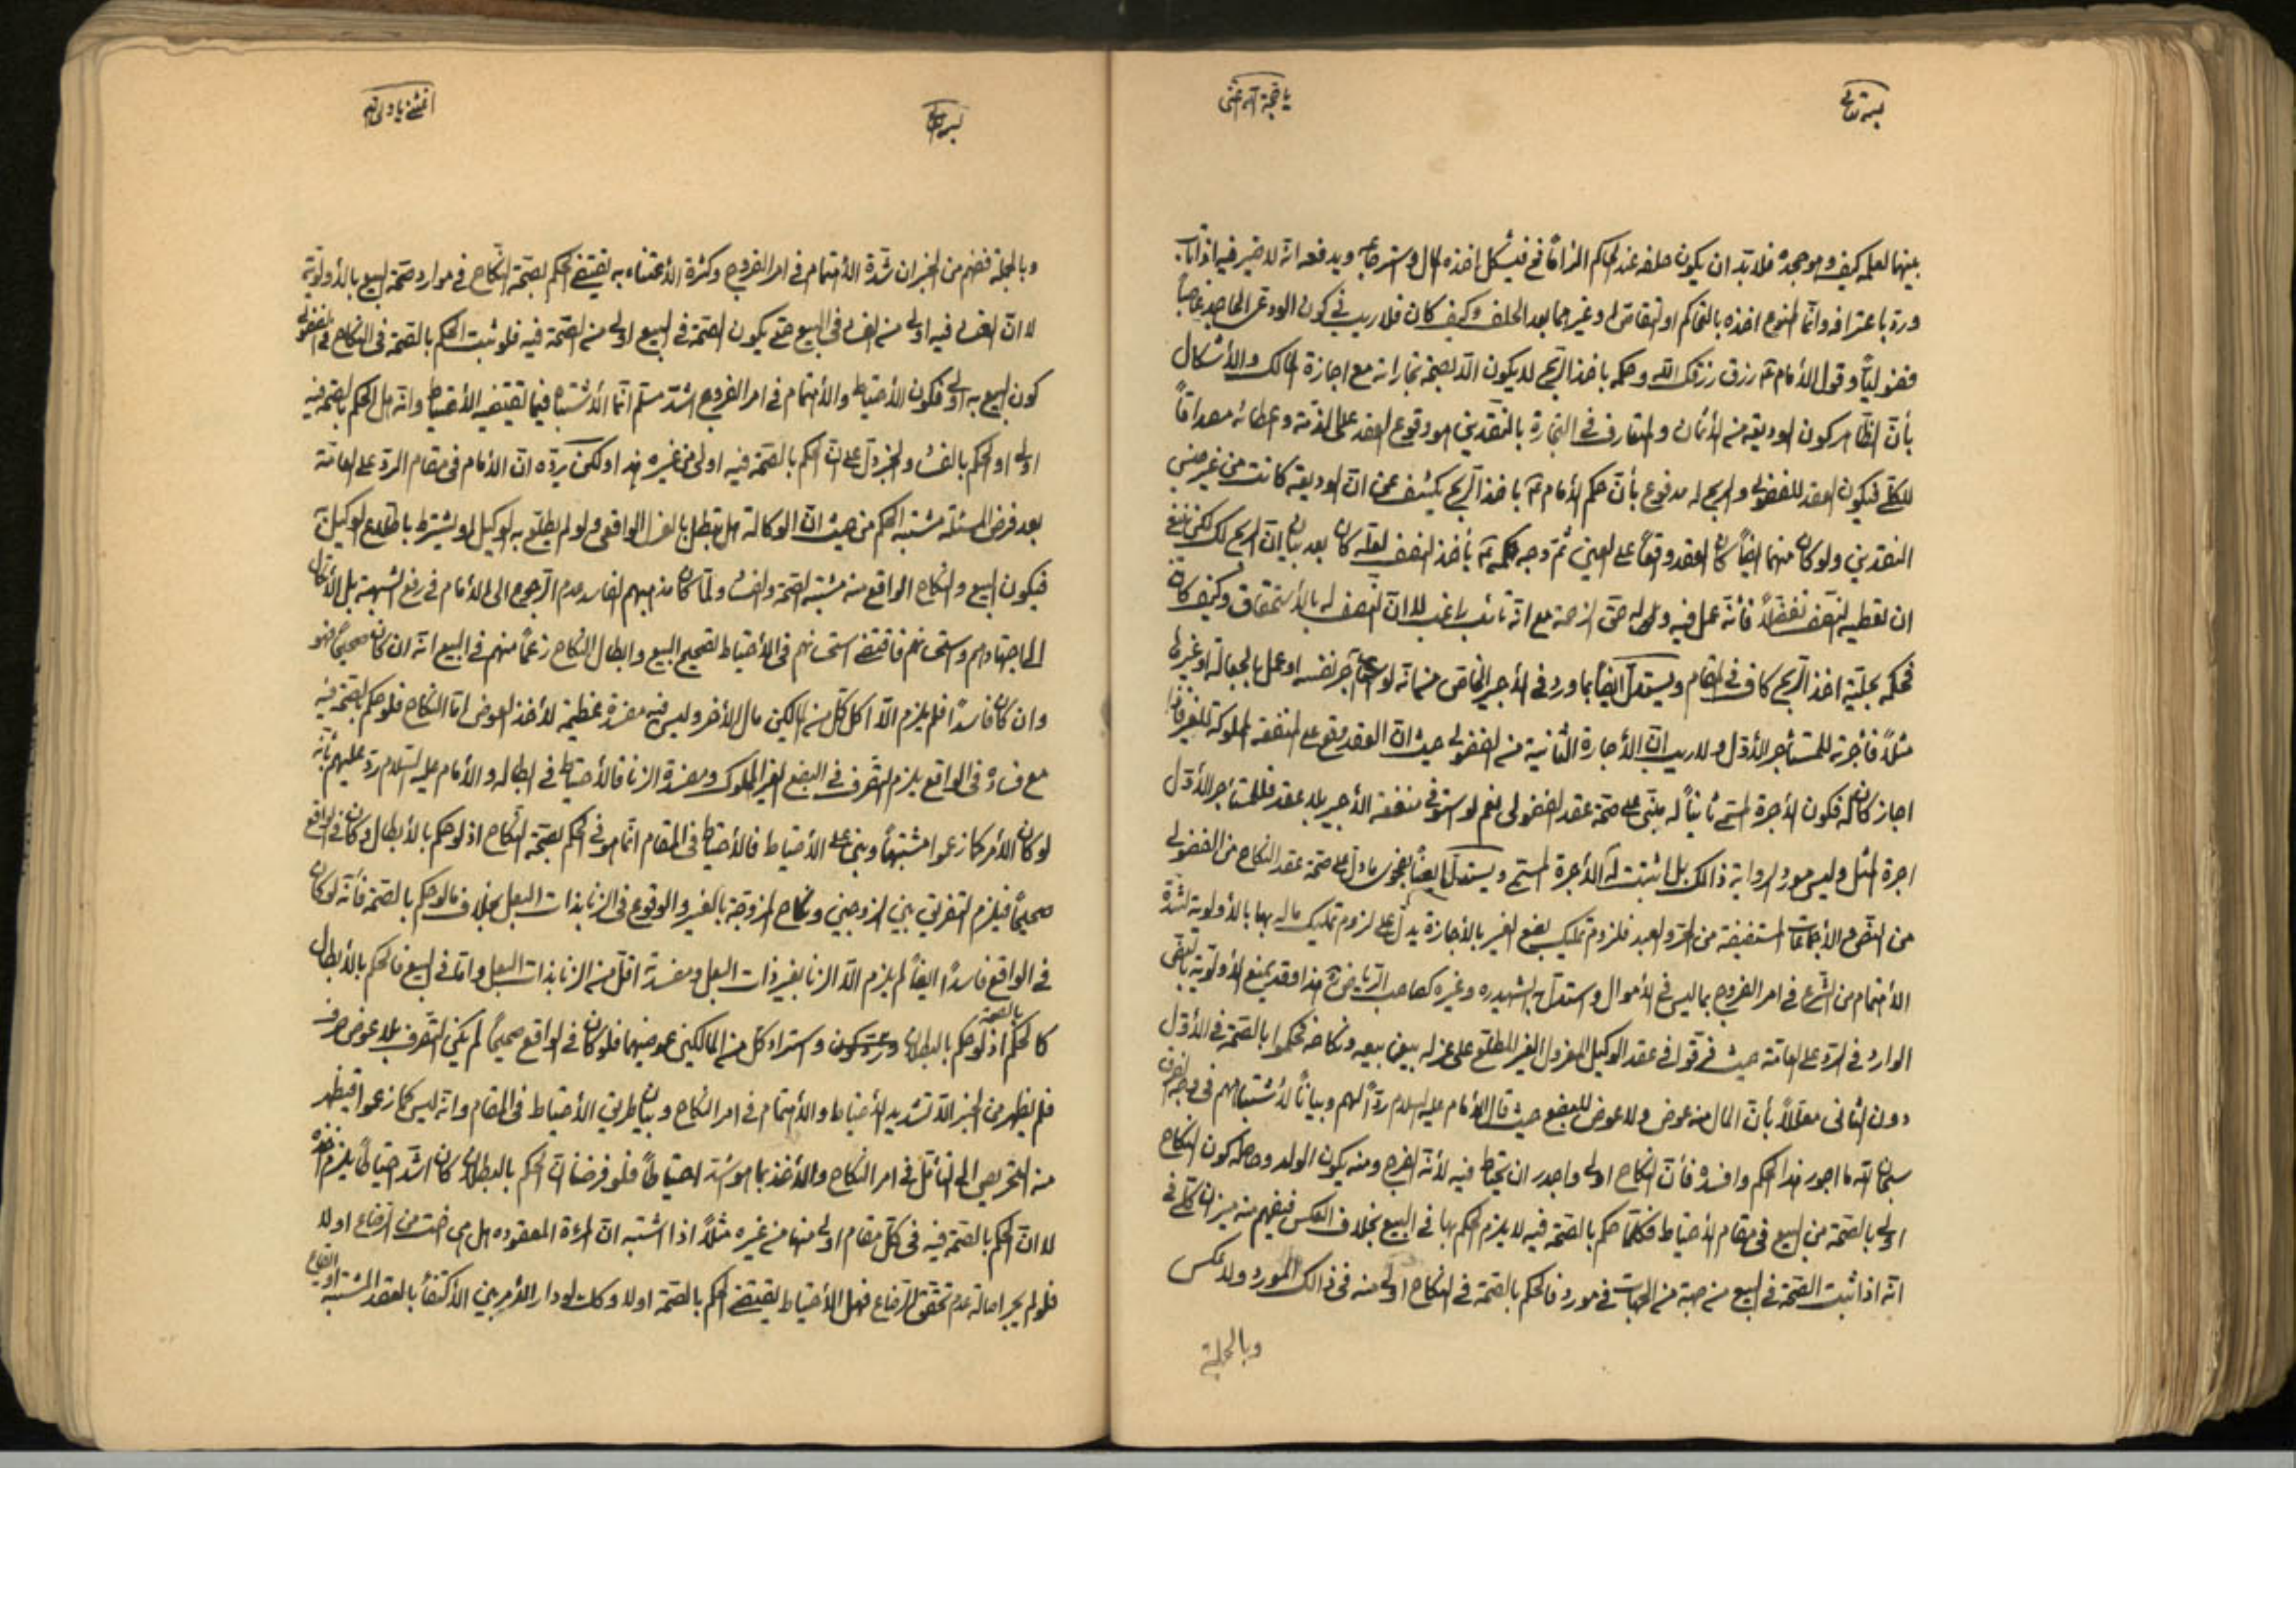 بسمه تعالى
يا حجة الله اغثنى
بينهما لعله كيف وهو جحده فلا بد ان يكون حلفه عند الحاكم الزاماً فح فيشكل اخذه المال واسترجاعه ويدفعه انه لا ضير فيه اذا تاب
ورد باعترافه وانما الممنوع اخذه بالتحاكم او التقاص او غيرهما بعد الحلف وكيف كان فلا ريب فى كون الودعى الجاحد غاصباً
فضولياً وقول الأمام رزق رزقك الله وحكمه باخذ الربح لا يكون الا لصحة تجاراته مع اجازة المالك والأشكال
بأن الظاهر كون الوديعة من الأثمان والمتعارف فى التجارة بالنقدين هو وقوع العقد على الذمة واعطائه مصداقاً
للكلى فيكون العقد للفضولى والربح له مدفوع بأن حكم الأمام باخذ الربح يكشف عن ان الوديعة كانت من غير جنس
النقدين ولو كان منهما ايضاً كان العقد وقوعاً على العين ثم وجه حكمه بأخذ النصف لعله كان بعد بيان ان الربح لك لكن ينبغى
ان تعطيه النصف تفضلاً فأنه عمل فيه وله حق الزحمة مع انه تائب راغب لا ان النصف له بالأستحقاق وكيف كان
فحكمه بحلية اخذ الربح كاف فى المقام ويستدل ايضاً بما ورد فى الأجير الخاص من انه لو آجر نفسه او عمل بالجعالة او غيرها
مثلاً فأجرته للمستأجر الأول ولا ريب ان الأجارة الثانية من الفضولى حيث ان العقد وقع على المنفعة المملوكة للغير فاذا
اجاز كان له فكون الأجرة المسمى ثانياً له مبنى على صحة عقد الفضولى نعم لو استوفى منفعة الأجير بلا عقد فللمستأجر الأول
اجرة المثل وليس مورد الرواية ذالك بل اثبتت له الأجرة المسمى ويستدل ايضاً بفحوى ما دل على صحة عقد النكاح من الفضولى
من النص والأجماعات المستفيضة من الحر والعبد فلزوم تمليك بضع الغير بالأجازة يدل على لزوم تمليك ماله بها بالأولوية لشدة
الأهتمام من الشرع فى امر الفروج بما ليس فى الأموال واستدل الشهيد ره وغيره كصاحب الرياض هذا وقد يمنع الأولوية بالنص
الوارد فى الرد على العامة حيث فرقوا فى عقد الوكيل المعزول الغير المطلع على عزله بين بيعه ونكاحه فحكموا بالصحة فى الأول
دون الثانى معللاً بأن المال منه عوض ولا عوض للبضع حيث قال الأمام عليه السلام رداً لهم وبياناً لأشتباههم فى وجه الفرق
سبحان الله ما اجور هذا الحكم وافسده فأن النكاح اولى واجدر ان يحتاط فيه لأنه الفرج ومنه يكون الولد وحاصله كون النكاح
اولى بالصحة من البيع فى مقام الأحتياط فكلما حكم بالصحة فيه لا يلزم الحكم بها فى البيع بخلاف العكس فيفهم منه ميزان كلى فى
انه اذا ثبت الصحة فى البيع من جهة من الجهات فى مورد فالحكم بالصحة فى النكاح اولى منه فى ذالك المورد ولا عكس
وبالجملة
بسمه تعالى
وبالجملة فهم من الخبر ان شدة الأهتمام فى امر الفروج وكثرة الأعتناء به يقتضى الحكم بصحة النكاح فى موارد صحة البيع بالأولوية
لا ان الفساد فيه اولى من الفساد فى البيع حتى يكون الصحة فى البيع اولى من الصحة فيه فلو ثبت الحكم بالصحة فى النكاح فى الفضولى
كون البيع به اولى فكون الأحتياط والأهتمام فى امر الفروج اشد مسلم انما الأشتباه فيما تقتضيه الأحتياط وانه هل الحكم بالصحة فيه
اولى او الحكم بالفساد والخبر دل على ان الحكم بالصحة فيه اولى من غيره هذا ولكن يرده ان الأمام فى مقام الرد على العامة
بعد فرض المسئلة مشتبه الحكم من حيث ان الوكالة هل تبطل بالعزل الواقعى ولو لم يطلع به الوكيل او يشترط باطلاع الوكيل
فيكون البيع والنكاح الواقع منه مشتبه الصحة والفساد ولما كان مذهبهم الفاسد عدم الرجوع الى الأمام فى رفع الشبهة بل الأتكال
الى اجتهادهم واستحسانهم فاقتضى استحسانهم فى الأحتياط تصحيح البيع وابطال النكاح زعماً منهم فى البيع انه ان كان صحيحاً فهو
وان كان فاسداً فلم يلزم الا اكل كل من المالكين مال الأخر وليس فيه مفسدة عظيمة لأخذ العوض اما النكاح فلو حكم بالصحة فيه
مع فساده فى الواقع يلزم التصرف فى البضع الغير المملوك ومفسدة الزنا فالأحتياط فى ابطاله والأمام عليه السلام رد عليهم بأنه
لو كان الأمر كما زعموا مشتبهاً وبنى على الأحتياط فالأحتياط فى المقام انما هو فى الحكم بصحة النكاح اذ لو حكم بالأبطال وكان فى الواقع
صحيحاً فيلزم التفريق بين الزوجين ونكاح الزوجة بالغير والوقوع فى الزنا بذات البعل بخلاف ما لو حكم بالصحة فأنه لو كان
فى الواقع فاسداً ايضاً لم يلزم الا الزنا بغير ذات البعل ومفسدته اقل من الزنا بذات البعل واما فى البيع فالحكم بالأبطال
كالحكم بالصحة اذ لو حكم بالبطلان واسترد كل من المالكين عوضيهما فلو كان فى الواقع صحيحاً لم يكن التصرف بلا عوض صرف
فلم يظهر من الخبر الا تشديد الأحتياط والأهتمام فى امر النكاح وبيان طريق الأحتياط فى المقام وانه ليس كما زعموا فيظهر
منه التحريص الى التأمل فى امر النكاح والأخذ بما هو اشد احتياطاً فلو فرضنا ان الحكم بالبطلان كان اشد احتياطاً يلزم اخذه
لا ان الحكم بالصحة فيه فى كل مقام اولى منها من غيره مثلاً اذا اشتبه ان المرئة المعقوده هل هى اخت من الرضاع او لا
فلو لم يجر اصالة عدم تحقق الرضاع فهل الأحتياط يقتضى الحكم بالصحة او لا وكذا لو دار الأمر بين الأكتفاء بالعقد المشتبه او ايقاع